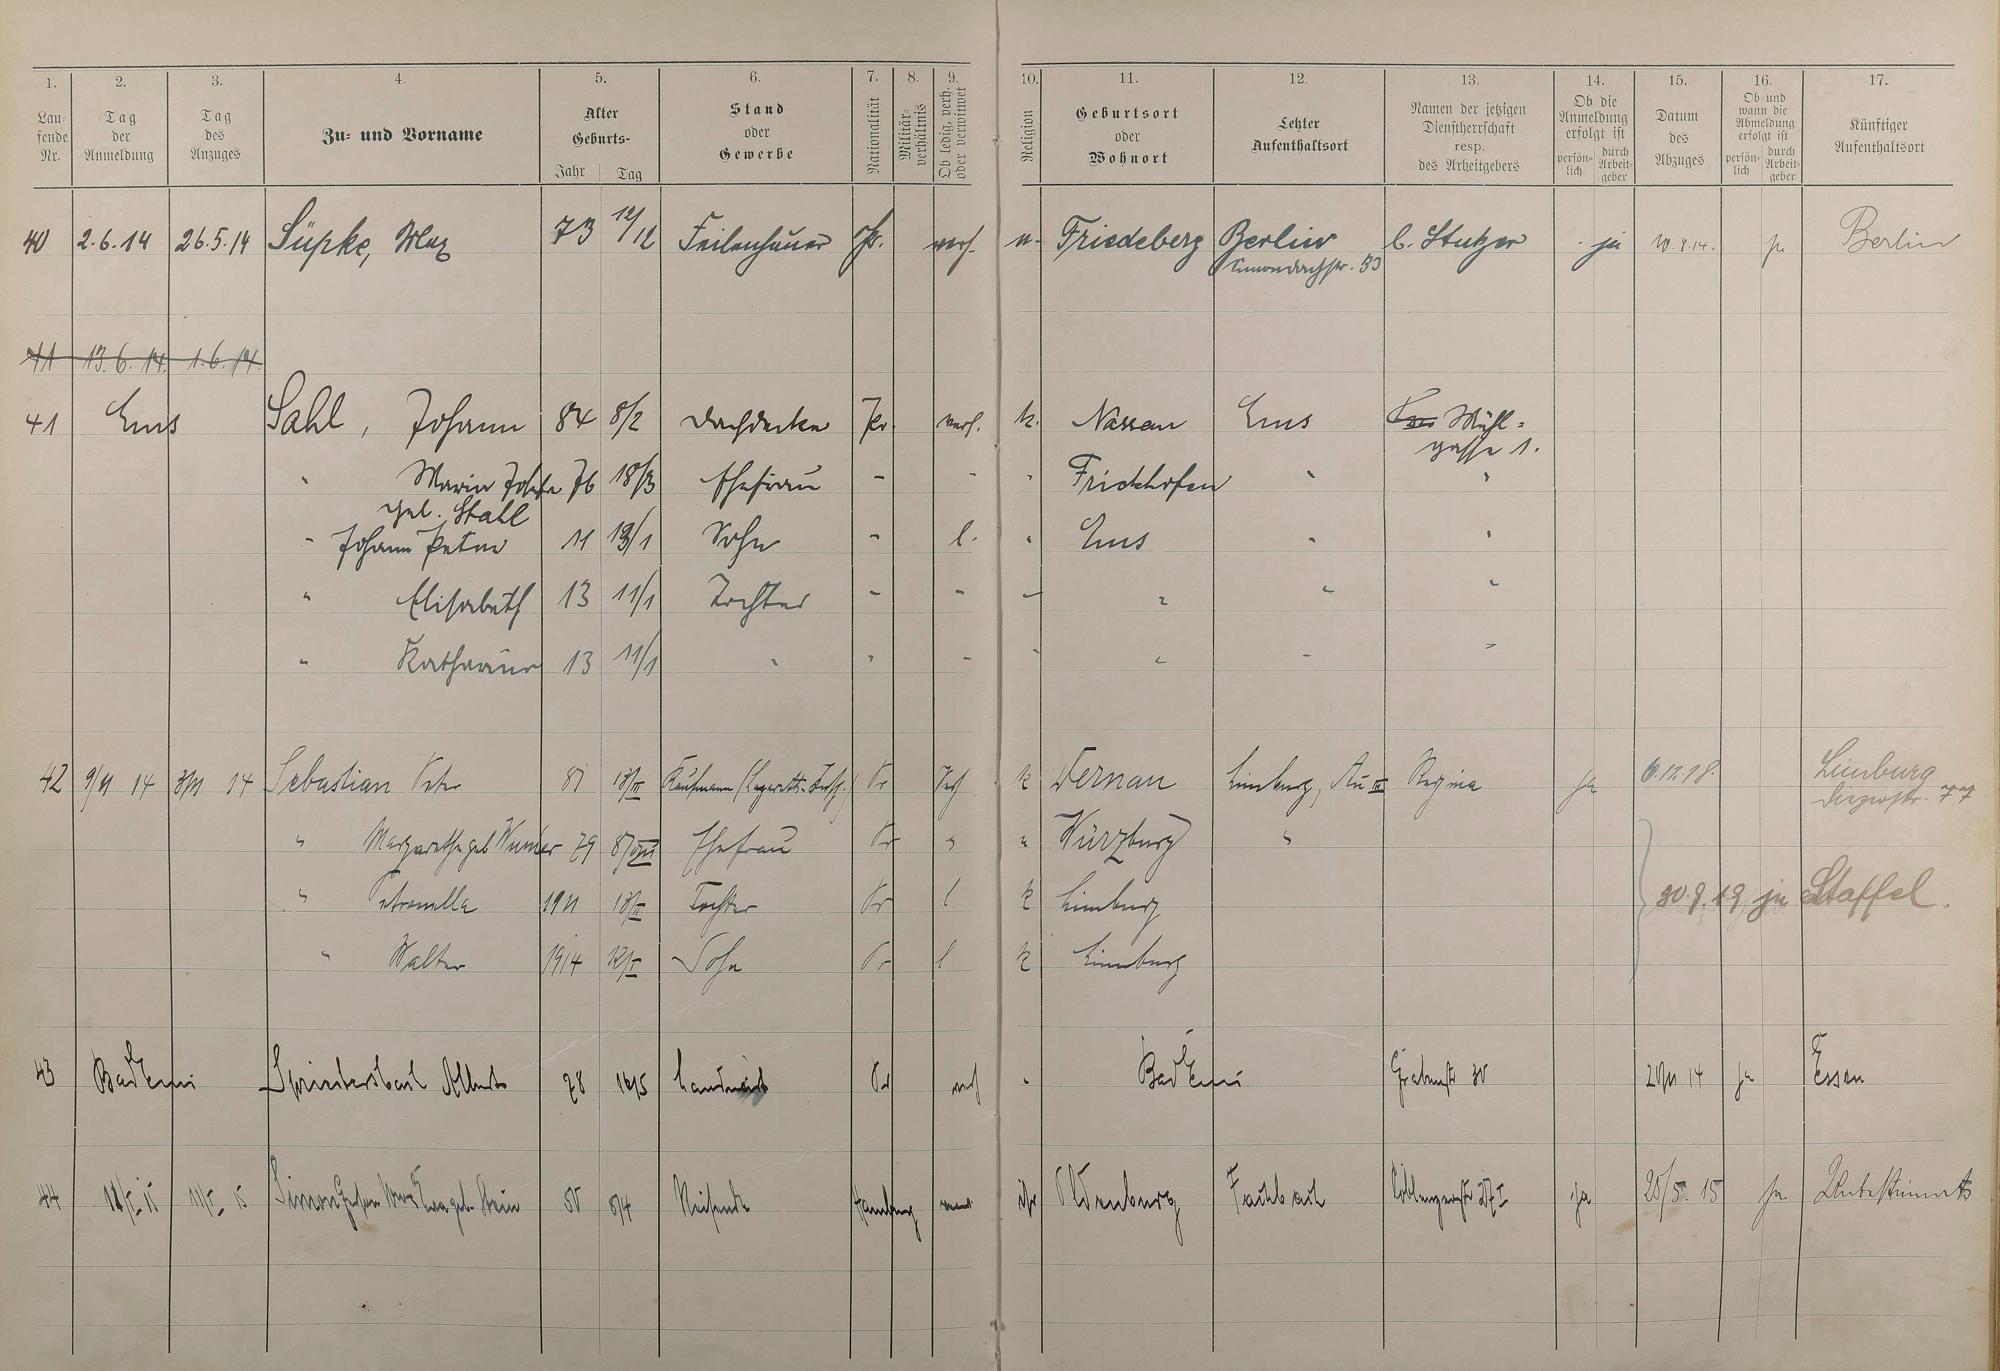 1. 2. 3. 4. 5. 6. 7. 8. 9. 10. 11. 12. 13. 14. 15. 16. 17.
Lau-
fende
Nr.
Tag
der
Anmeldung
Tag
des
Anzuges
Zu- und Vorname
Alter
Geburts-
Jahr Tag
Stand
oder
Gewerbe
Nationalität
Militär-
verhältnis
Ob ledig, verh.
oder verwitwet
Religion
Geburtsort
oder
Wohnort
Letzter
Aufenthaltsort
Namen der jetzigen
Dienstherrschaft
resp.
des Arbeitgebers
Ob die
Anmeldung
erfolgt ist
persön-
lich
durch
Arbeit-
geber
Datum
des
Abzuges
Ob und
wann die
Abmeldung
erfolgt ist
persön-
lich
durch
Arbeit-
geber
Künftiger
Aufenthaltsort
40 2.6.14 26.5.14 Süpke, Max 73 12/12 Feilenhauer Pr. verh. Friedeberg Berlin b. Stutzer ja 10.8.14. ja Berlin
41 13.6.14. 1.6.14.
41 Ems Sahl, Johann 84 8/2 Dachdecker Pr. verh. k. Nassau Ems Mühl-
gasse 1.
" Maria Josefa 76 18/3 Ehefrau - - " Frickhofen " "
geb. Stahl
" Johann Peter 11 13/1 Sohn - l. " Ems " "
" Elisabeth 13 11/1 Tochter - - - " " "
" Katharina 13 11/1 " " - - " - "
42 9/11 14 3/11 14 Sebastian Peter 81 18/III Kaufmann Pr Verh k Dernau Limburg, Au Regina ja 6.12.18. Limburg
Diezerstr. 77
" Margarethe geb 79 8/VIII Ehefrau Pr " " Würzburg "
" Petronella 1911 18/II Tochter Pr l k Limburg
30.9.19 ja Staffel.
" Walter 1914 12/I Sohn Pr l k Limburg
43 Bad Ems Albert 78 16/5 Landwirt Pr verh " Bad Ems Grabenstr 30 20/11 14 ja Essen
44 11/I 15 Simon geb. Stein 8/4 Reisende Hamburg isr Oldenburg Fachbach ja 25/5. 15 ja Unbestimmt